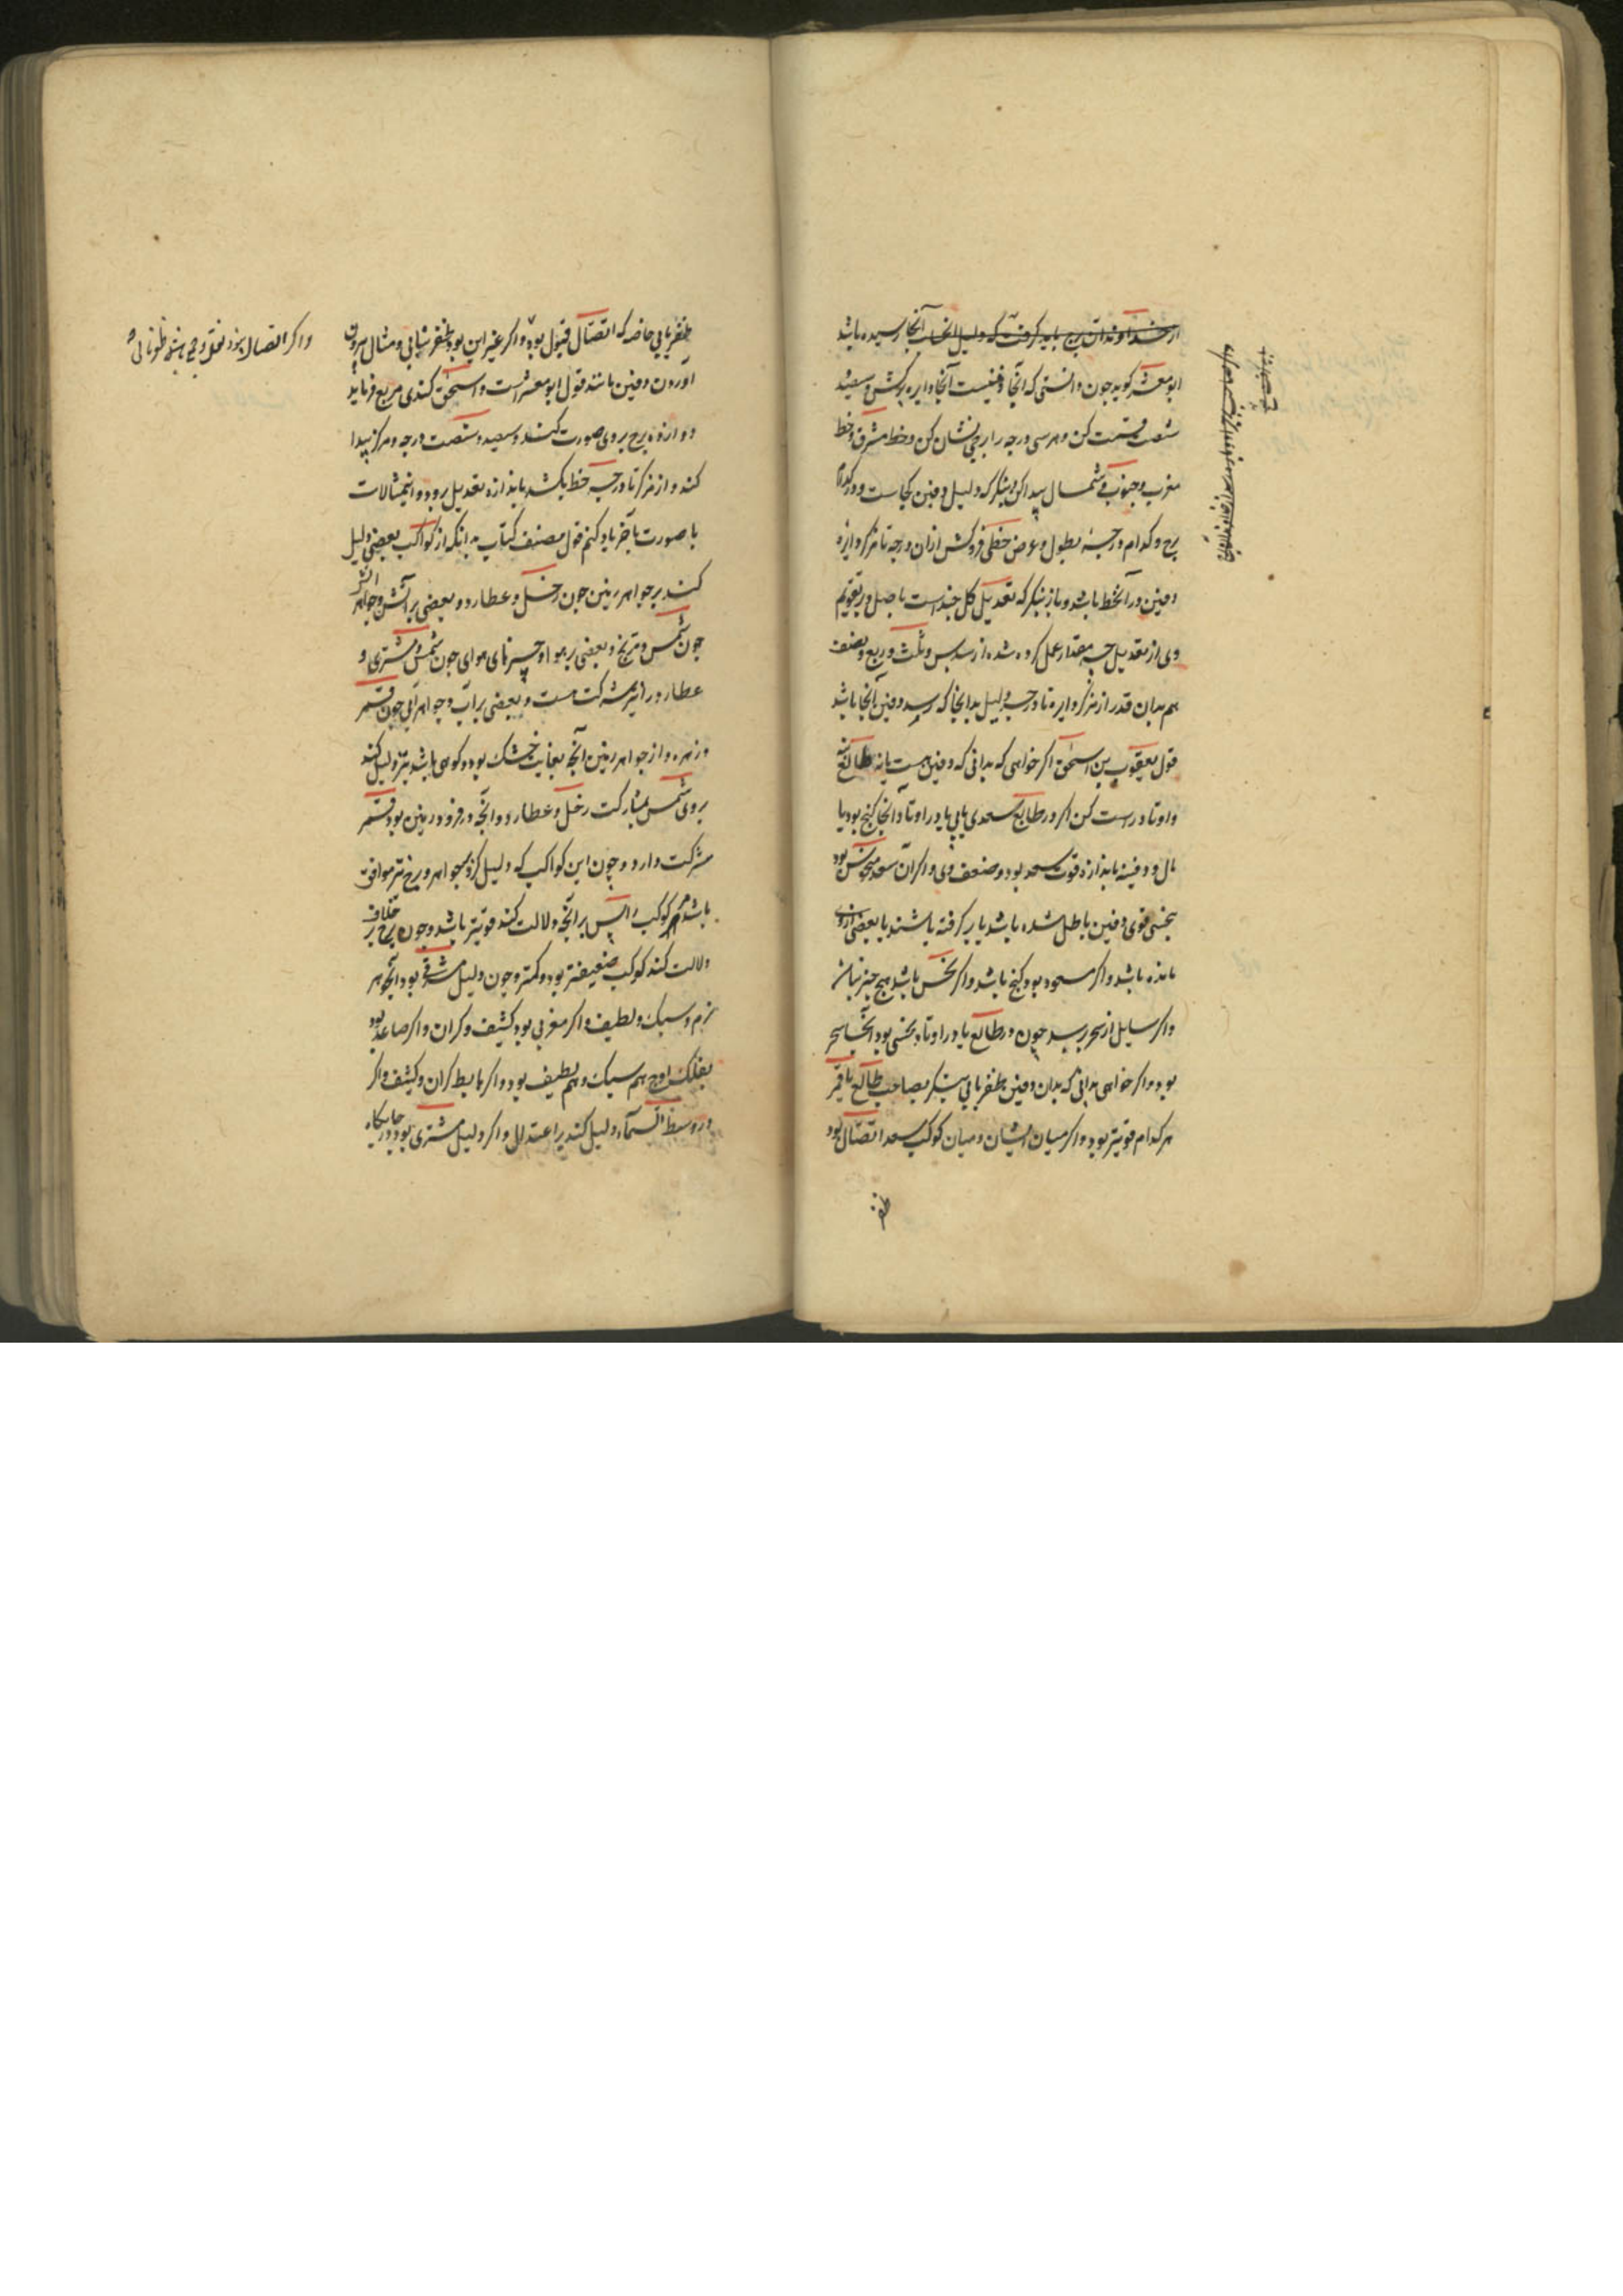 از خداوندان برج باید گرفت که دلیل انجا رسیده باشد
ابو معشر کوید چون دانستی که آنجا دفینست آنجا دایره برکش و سیصد
شصت قسمت کن و هر سی درجه را برجی نشان کن و خط مشرق و خط
مغرب و جنوب و شمال پیدا کن و بنکر که دلیل دفین کجاست و در کدام
برج و کدام درجه بطول و عرض خطی فروکش ازان درجه تا مرکز دایره
دفین در آنخط باشد و باز بنکر که تعدیل کل چندست باصل و در تقویم
وی از تعدیل چه مقدار عمل کرده شده از سدس و ثلث و ربع و نصف
هم بدان قدر از مرکز دایره تا درجه دلیل بدانجا که رسد دفین آنجا باشد
قول یعقوب بن اسحق اکر خواهی که بدانی که دفین هست یا نه طالع
و اوتاد راست کن اکر در طالع سعدی یابی یا در اوتاد آنجا کنج بود یا
مال و دفینه باندازه قوت سعد بود و ضعف وی و اکر آن سعد منحوس بود
بنحسی قوی دفین باطل شده باشد یا برکرفته باشند یا بعضی ازوی
مانده باشد و اکر مسعود بود کنج باشد و اکر نحس باشد هیچ چیز نباشد
و اکر سایل از سحر پرسد چون در طالع یا در اوتاد نحسی بود آنجا سحر
بود و اکر خواهی بدانی که بدان دفین ظفر یابی بنکر بصاحب طالع یا قمر
هر کدام قویتر بود و اکر میان ایشان و میان کوکب سعد اتصال بود
ظفر
ظفر یابی خاصه که اتصال قبول بود و اکر غیر این بود ظفر نیابی و مثال بیرون
آوردن دفین مانند قول ابو معشر است و اسحق کندی مربع فرماید
دوازده برج بروی صورت کنند و سیصد و شصت درجه و مرکز پیدا
کند و از مرکز تا درجه خط بکشد باندازه تعدیل برود و اینمثالات
با صورت بآخر یاد کنم قول مصنف کتاب بدانکه از کواکب بعضی دلیل
کنند بر جواهر زمین چون زحل و عطارد و بعضی بر آتش و جواهر آتش
چون شمس و مریخ و بعضی بر هوا و چیزهای هوای چون شمس و مشتری و
عطارد را نیز شرکت هست و بعضی بر آب و جواهر آبی چون قمر
و زهره و از جواهر زمین آنچه بغایت خشک بود و کوهی باشد نیز دلیل کند
بروی شمس بمشارکت زحل و عطارد و آنچه در فرود زمین بود قمر
شرکت دارد و چون این کواکب که دلیل کردیم بجواهر و برج نیز موافق
باشد هر کوکب را پس بر آنچه دلالت کند قویتر باشد و چون برج بر خلاف
دلالت کند کوکب ضعیفتر بود و کمتر و چون دلیل مشرقی بود آنجوهر
نرم و سبک و لطیف و اکر مغربی بود کثیف و کران و اکر صاعد بود
بفلک اوج هم سبک و هم لطیف بود و اکر هابط کران و کثیف و اکر
در وسط السماء دلیل کند بر اعتدال و اکر دلیل مشتری بود در جایگاه
و اکر اتصال بود